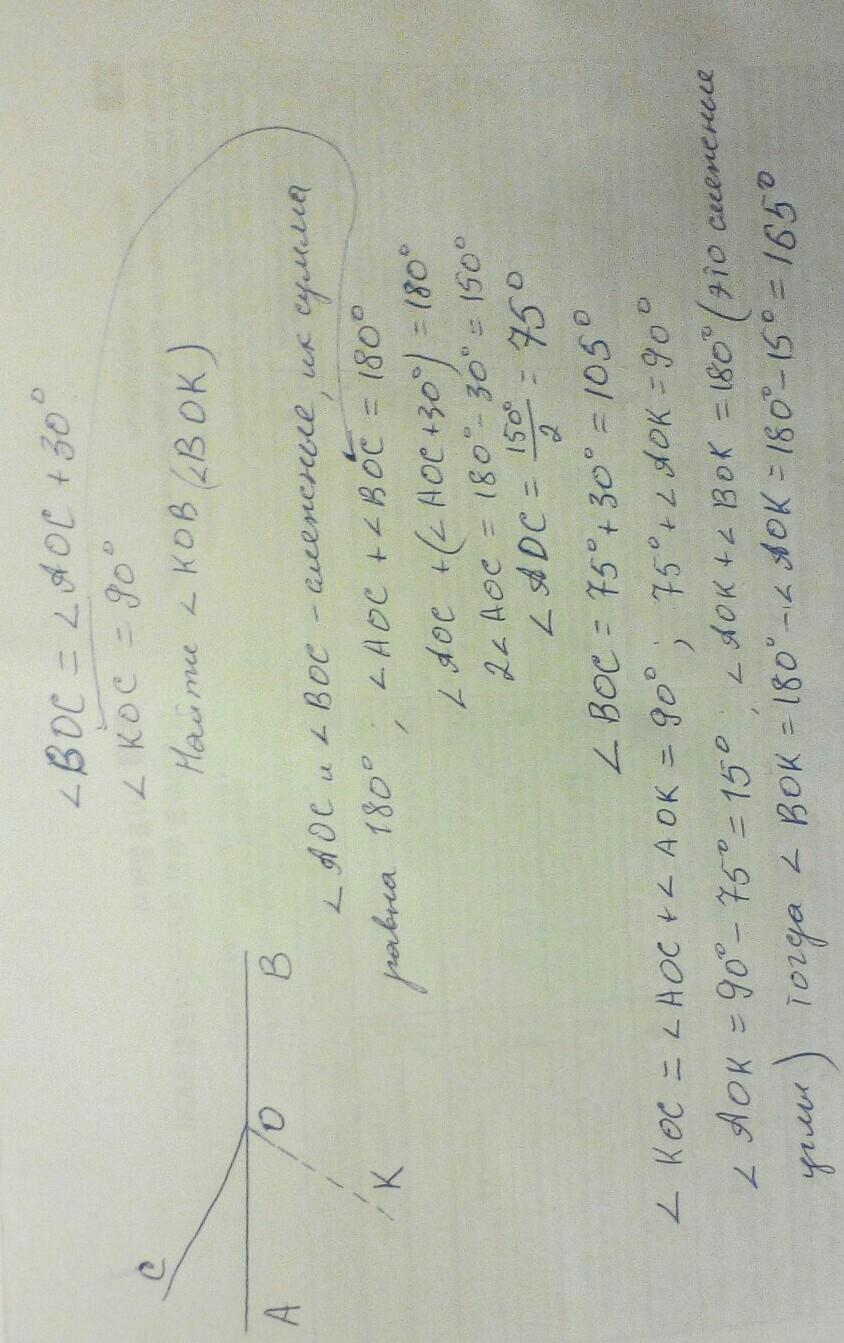 ∠BOC = ∠AOC + 30°
∠KOC = 90°
Найти ∠KOB (∠BOK)
C
A
O
B
K
∠AOC и ∠BOC - смежные, их сумма
равна 180°, ∠AOC + ∠BOC = 180°
∠AOC + (∠AOC + 30°) = 180°
2∠AOC = 180° - 30° = 150°
∠AOC = 150°/2 = 75°
∠BOC = 75° + 30° = 105°
∠KOC = ∠AOC + ∠AOK = 90°; 75° + ∠AOK = 90°
∠AOK = 90° - 75° = 15°; ∠AOK + ∠BOK = 180° (это смежные
углы) тогда ∠BOK = 180° - ∠AOK = 180° - 15° = 165°